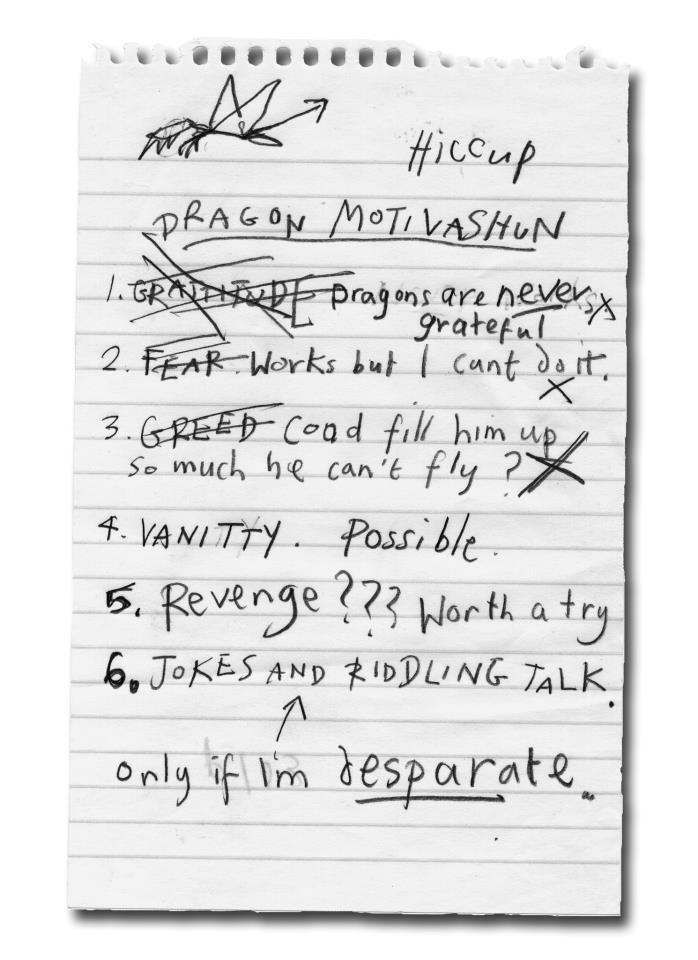 Hiccup
DRAGON MOTIVASHUN
1. GRATITUDE Dragons are never
grateful
2. FEAR. Works but I cant do it.
3. GREED Coad fill him up
so much he can't fly?
4. VANITTY. Possible.
5. Revenge??? Worth a try
6. JOKES AND RIDDLING TALK.
only if I'm desparate..